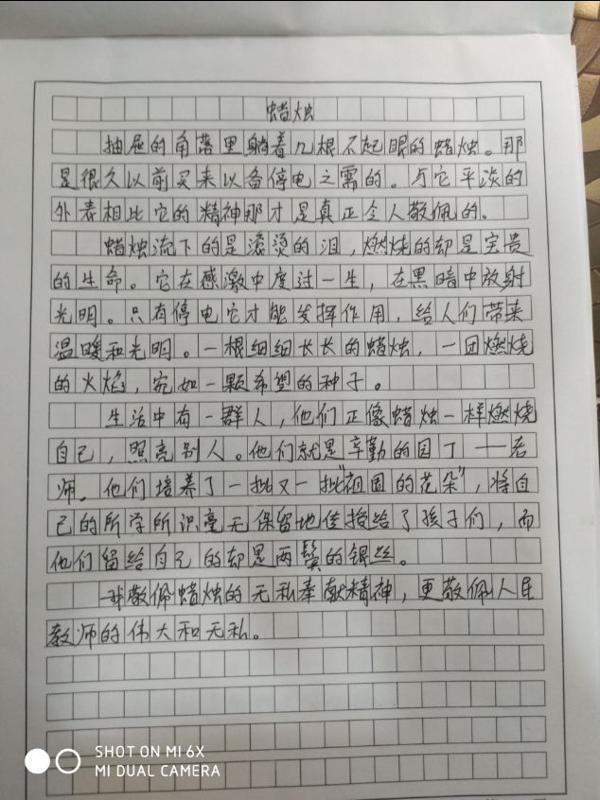 蜡烛
抽屉的角落里躺着几根不起眼的蜡烛。那
是很久以前买来以备停电之需的。与它平淡的
外表相比它的精神那才是真正令人敬佩的。
蜡烛流下的是滚烫的泪，燃烧的却是宝贵
的生命。它在感激中度过一生，在黑暗中放射
光明。只有停电它才能发挥作用，给人们带来
温暖和光明。一根细细长长的蜡烛，一团燃烧
的火焰，宛如一颗希望的种子。
生活中有一群人，他们正像蜡烛一样燃烧
自己，照亮别人。他们就是辛勤的园丁——老
师。他们培养了一批又一批"祖国的花朵"，将自
己的所学所识毫无保留地传授给了孩子们，而
他们留给自己的却是两鬓的银丝。
我敬佩蜡烛的无私奉献精神，更敬佩人民
教师的伟大和无私。
SHOT ON MI 6X
MI DUAL CAMERA